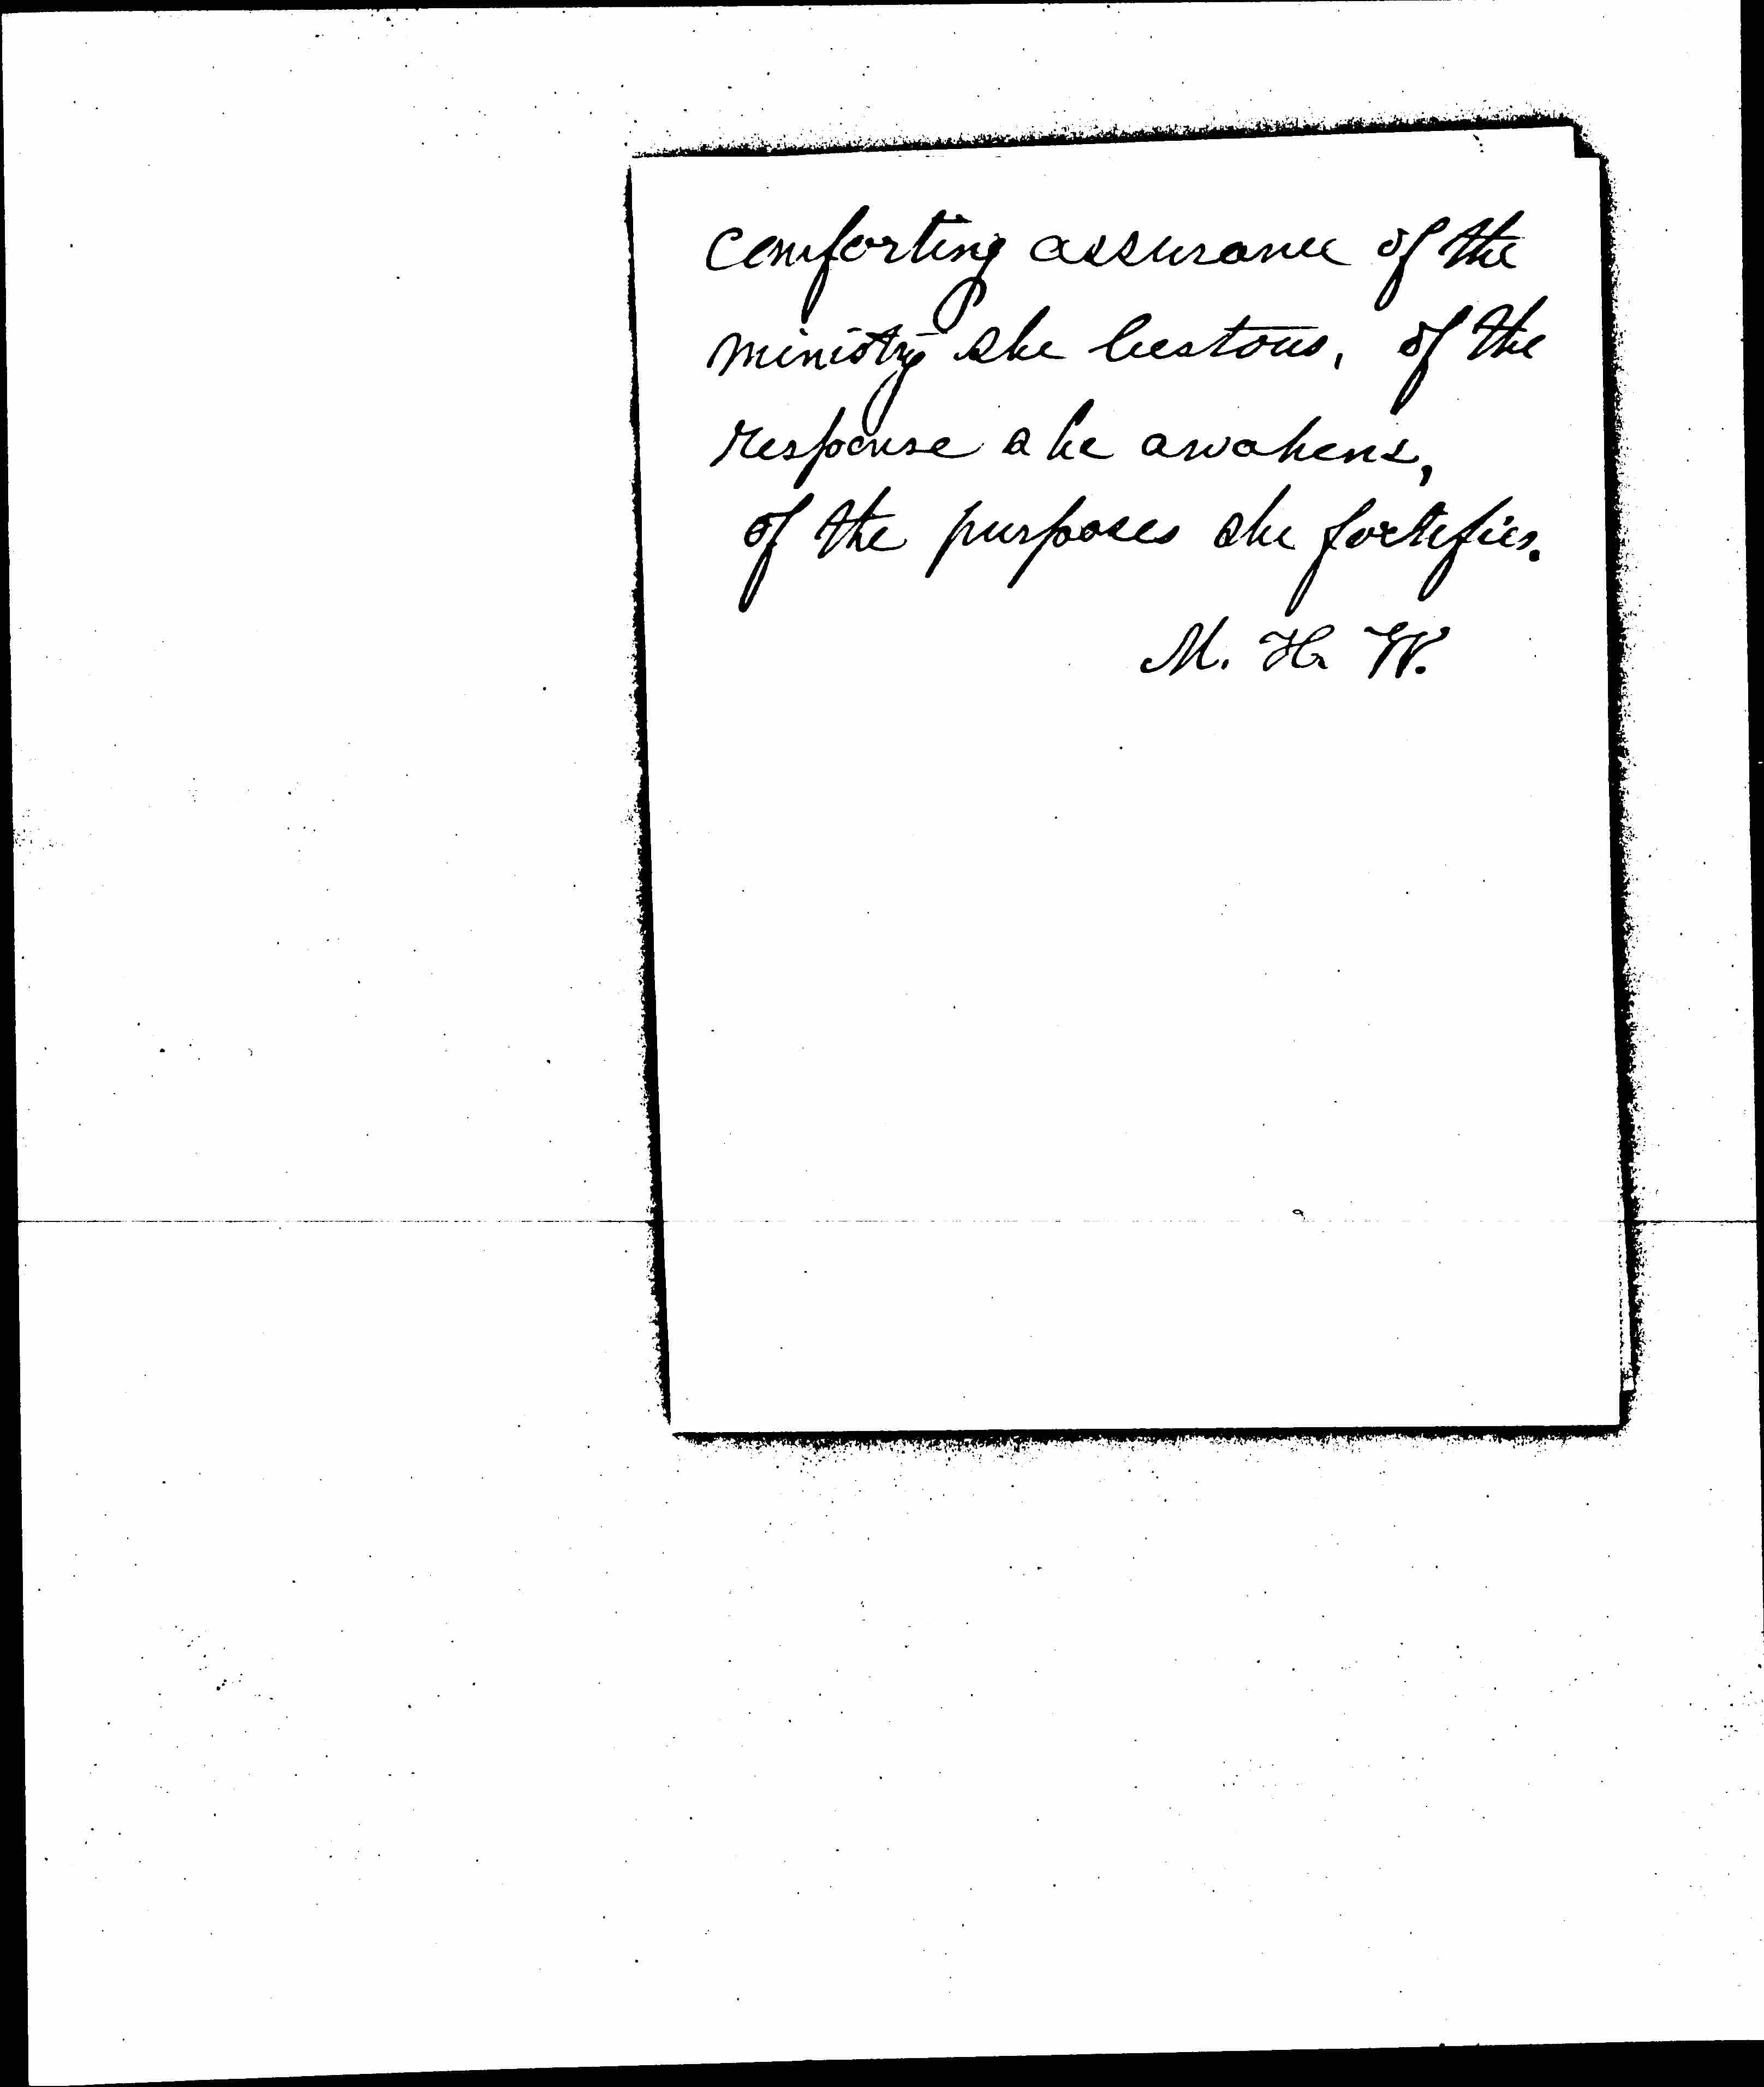 comforting assurance of the
ministry she bestows, of the
response she awakens,
of the purposes she fortifies.
M. H. W.